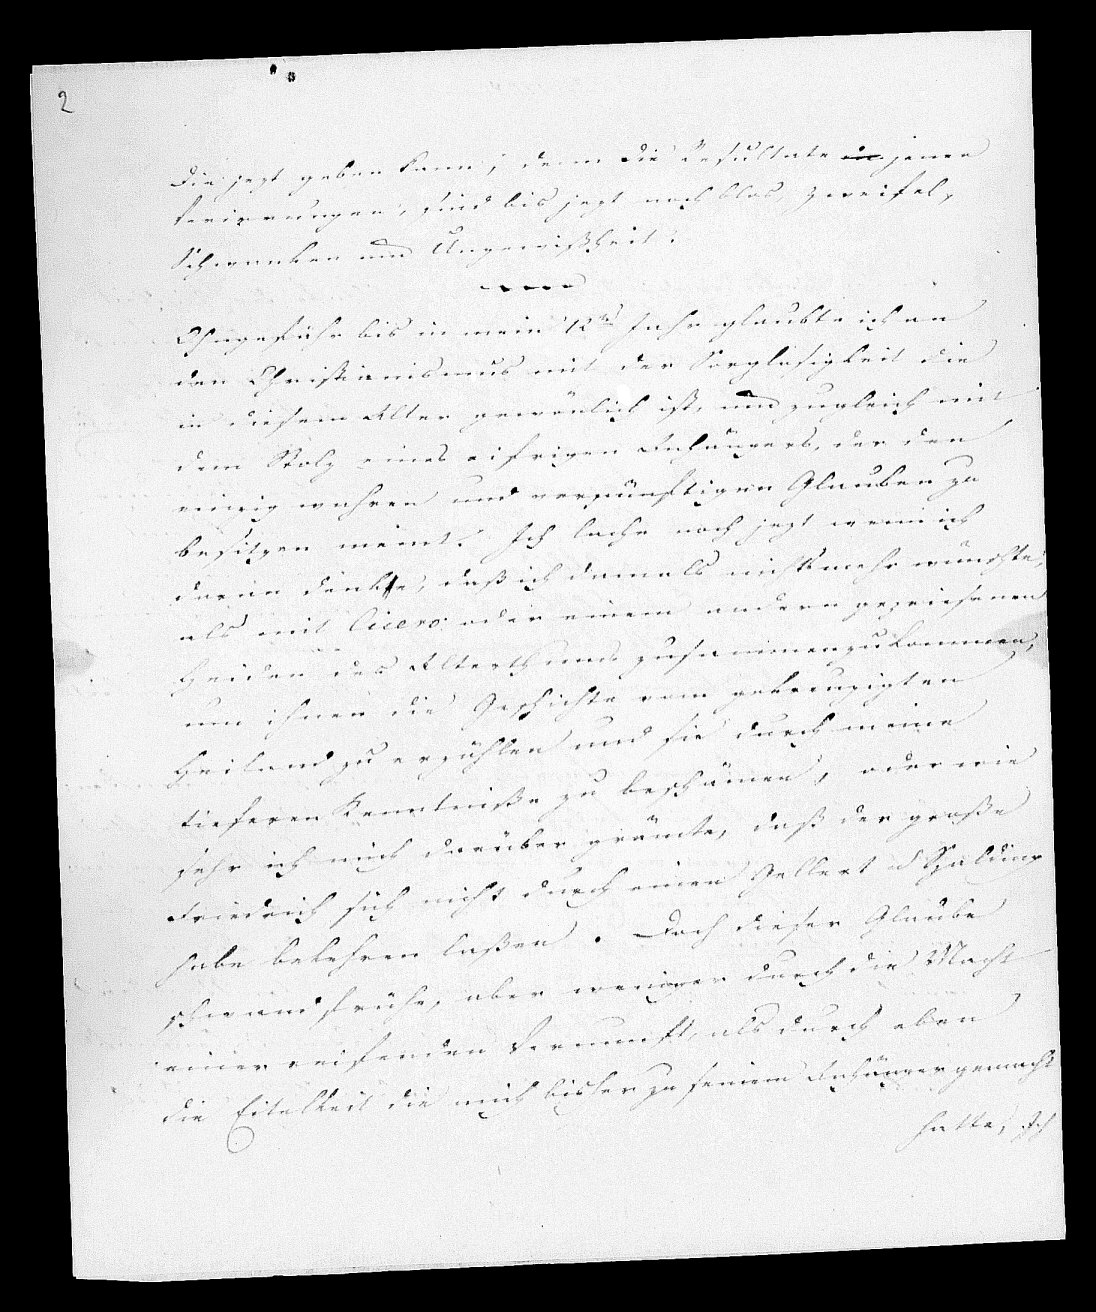 2
Die jezt geben kann; denn die Resultate in jener
Verirrungen, sind bis jezt noch blos, Zweifel,
Schwanken und Ungewißheit.
Ohngefähr bis in mein 12tes Jahr glaubte ich an
den Christianismus mit der Sorglosigkeit die
in diesem Alter gewönlich ist, und zugleich mit
dem Stolz eines eifrigen Anhängers, der den
einzig wahren und vernünftigen Glauben zu
besitzen meint. Ich lache noch jezt wenn ich
daran denke, daß ich damals nichts mehr wünschte,
als mit Cicero oder einem andern gepriesenen
Heiden des Alterthums zusammenzukommen,
um ihnen die Geschichte vom gekreuzigten
Heiland zu erzählen und sie durch meine
tieferen Kenntniße zu beschämen, oder wie
sehr ich mich darüber grämte, daß der große
Friedrich sich nicht durch einen Gellert u Spalding
habe bekehren laßen. Doch dieser Glaube
schwand frühe, aber weniger durch die Macht
einer reifenden Vernunft, als durch eben
die Eitelkeit die mich bisher zu seinem Anhänger gemacht
hatte, Ich